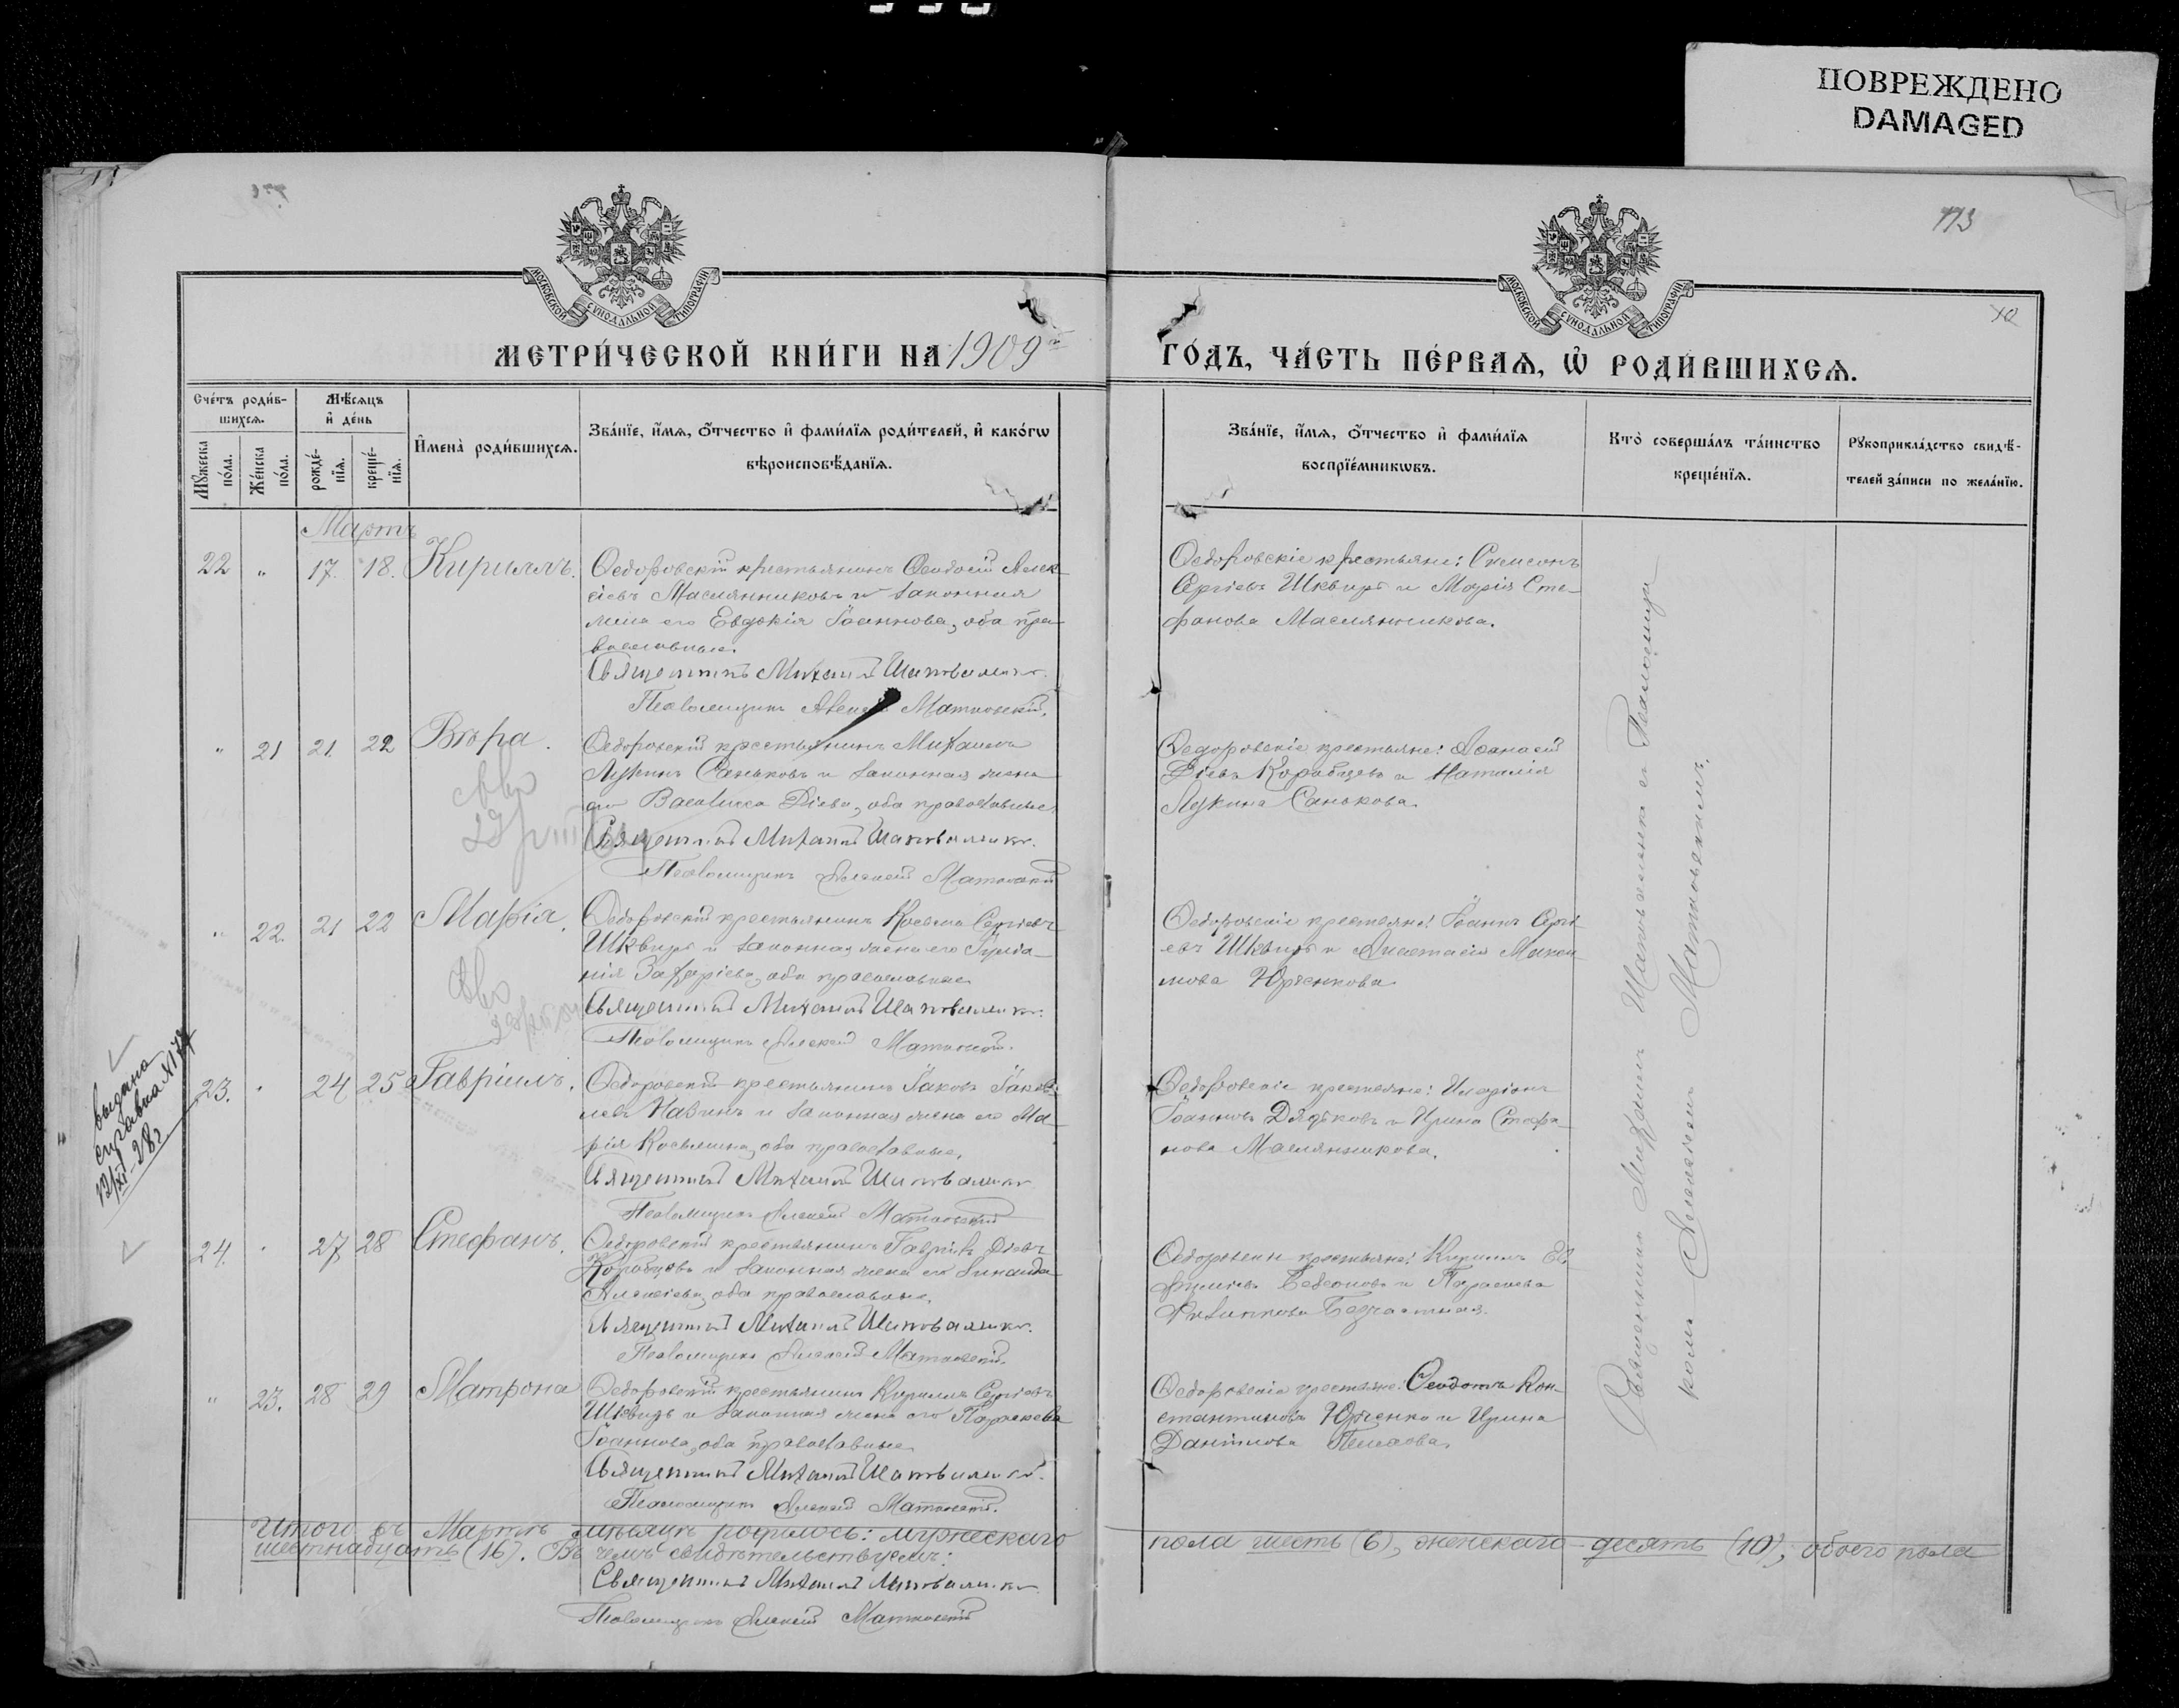 ПОВРЕЖДЕНО
DAMAGED
113
10
МОСКОВСКОЙ СѴНОДАЛЬНОЙ ТИПОГРАФІИ
МОСКОВСКОЙ СѴНОДАЛЬНОЙ ТИПОГРАФІИ
МЕТРИ́ЧЕСКОЙ КНИ́ГИ НА 1909й
ГО́ДЪ, ЧА́СТЬ ПЕ́РВАѦ, Ѡ҆ РОДИ́ВШИХСѦ.
Сче́тъ роди́в-
шихсѧ.
Мѣ́сѧцъ
и҆ де́нь
Мꙋ́жеска
по́ла.
Же́нска
по́ла.
рожде́-
нїѧ.
креще́-
нїѧ.
И҆мена̀ роди́вшихсѧ.
Зва́нїе, и҆́мѧ, ѻ҆́тчество и҆ фами́лїѧ роди́телей, и҆ како́гѡ
вѣроисповѣ́данїѧ.
Зва́нїе, и҆́мѧ, ѻ҆́тчество и҆ фами́лїѧ
воспрїе́мникѡвъ.
Кто̀ соверша́лъ та́инство
креще́нїѧ.
Рꙋкоприкла́дство свидѣ́-
телей за́писи по жела́нїю.
Мартъ
22 " 17. 18. Кириллъ.
Ѳедоровскій крестьянинъ Ѳеодосій Алек
сіевъ Маслянниковъ и законная
жена его Евдокія Іоаннова, оба пра
вославные.
Священникъ Михаилъ Шаповаленко.
Псаломщикъ Алексій Матковскій.
Ѳедоровскіе крестьяне: Симеонъ
Сергіевъ Шквиръ и Марія Сте-
фанова Маслянникова.
" 21 21. 22 Вѣра.
Ѳедоровскій крестьянинъ Михаилъ
Лукинъ Саньковъ и законная жена
его Василисса Діева, оба православные.
Священникъ Михаилъ Шаповаленко.
Псаломщикъ Алексій Матковскій
Ѳедоровскіе крестьяне: Аѳанасій
Діевъ Коробцовъ и Наталія
Лукина Санькова.
" 22. 21 22 Марія.
Ѳедоровскій крестьянинъ Косьма Сергіевъ
Шквиръ и законная жена его
Захаріева, оба православные
Священникъ Михаилъ Шаповаленко.
Псаломщикъ Алексій Матковскій.
Ѳедоровскіе крестьяне: Іоаннъ Сергі
евъ Шквиръ и Анастасія
Юрченкова
выдана
справка №
12/XI-28г
23. " 24 25 Гавріилъ.
Ѳедоровскій крестьянинъ Іаковъ Іаков
левъ и законная жена его Ма
рія Косьмина, оба православные.
Священникъ Михаилъ Шаповаленко
Псаломщикъ Алексій Матковскій
Ѳедоровскіе крестьяне: Иларіонъ
Іоанновъ Дядьковъ и Ирина Стефа
нова Маслянникова.
24. " 27 28 Стефанъ.
Ѳедоровскій крестьянинъ Гавріилъ Діевъ
Коробцовъ и законная жена его Зинаида
Алексіева, оба православные.
Священникъ Михаилъ Шаповаленко.
Псаломщикъ Алексій Матковскій.
крестьяне: Кириллъ
и Параскева
" 23. 28 29 Матрона
Ѳедоровскій крестьянинъ Кириллъ Сергіевъ
Шквиръ и законная жена его Параскева
Іоаннова, оба православные
Священникъ Михаилъ Шаповаленко.
Псаломщикъ Алексій Матковскій.
Ѳедоровскіе крестьяне: Ѳеодотъ Кон-
стантиновъ Юрченко и Ирина
Даніилова
Священникъ Михаилъ Шаповаленко съ Псаломщи
комъ Алексіемъ Матковскимъ.
Итого въ Мартѣ мѣсяцѣ родилось: мужескаго пола шесть (6), женскаго десять (10), обоего пола
шестнадцать (16). Въ чемъ свидѣтельствуемъ:
Священникъ Михаилъ Шаповаленко
Псаломщикъ Алексій Матковскій